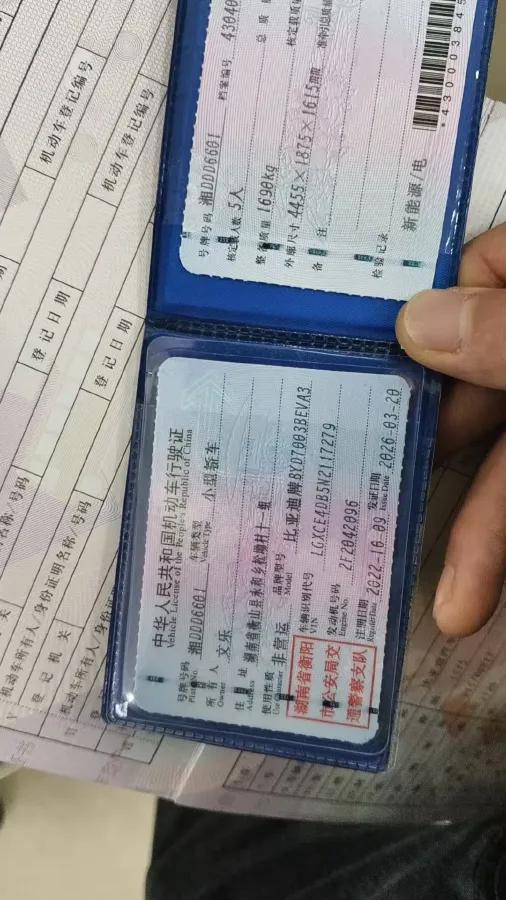 中华人民共和国机动车行驶证
Vehicle License of the People's Republic of China
号牌号码 湘DDD6601 车辆类型 小型轿车
Plate No. Vehicle Type
所有人 文乐
Owner
住址 湖南省衡山县永和乡松坳村十一组
Address
使用性质 非营运 品牌型号 比亚迪牌BYD7003BEVA3
Use Character Model
湖南省衡阳
市公安局交
通警察支队
车辆识别代号 LGXCE4DB5N2117279
VIN
发动机号码 2F2042096
Engine No.
注册日期 2022-10-09 发证日期 2026-03-20
Register Date Issue Date
号牌号码 湘DDD6601 档案编号 43040
核定载人数 5人 总质
整备质量 1690kg 核定载质量
外廓尺寸 4455×1875×1615mm 准牵引总质量
备注
检验记录
新能源/电
*430003845
机动车登记编号
机动车登记编号
登记日期
登记日期
机动车所有人/身份证明名称/号码
登记机关
机动车所有人/身份证明名称/号码